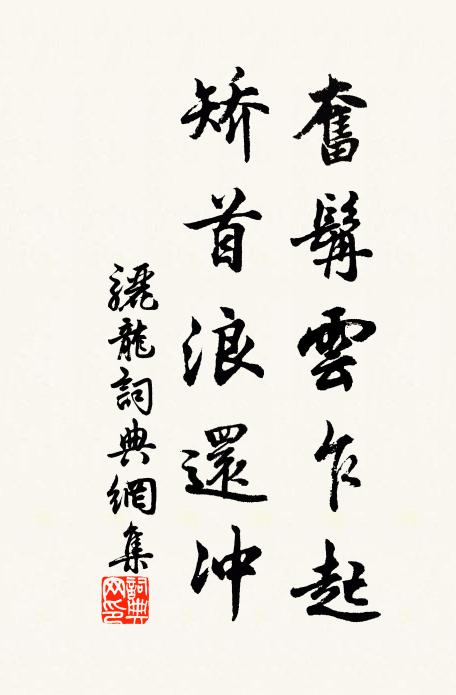 奮髯雲乍起
矯首浪還沖
驪龍詞典網集
詞典
网印